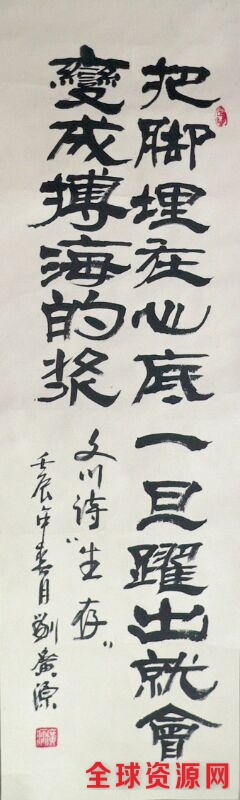 把脚埋在心底一旦躍出就會
變成搏海的浆
文川诗"生存"
壬辰年春月劉廣源
全球资源网